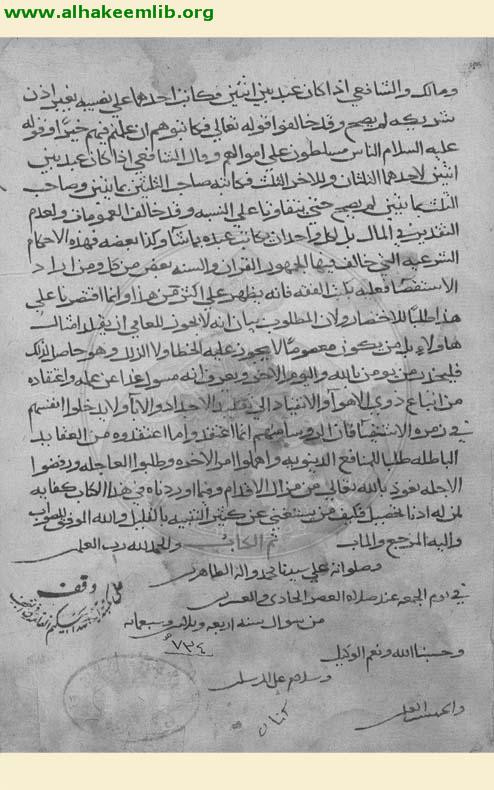 www.alhakeemlib.org
ومالك والشافعي اذا كان عبد بين اثنين وكاتب احدهما على نصيبه بغير اذن
شريكه لم يصح وقد خالفوا قوله تعالى فكاتبوهم ان علمتم فيهم خيرا وقوله
عليه السلام الناس مسلطون على اموالهم وقال الشافعي اذا كان عبد بين
اثنين لاحدهما الثلثان وللاخر الثلث فكاتبه صاحب الثلثين بمايتين وصاحب
الثلث بمايتين لم يصح حتى يتفاوتا على النسبه وقد خالف العمومات ولعدم
التقدير في المال بل لكل واحد ان يكاتب عبده بما شا وكذا بعضه فهذه الاحكام
الشرعيه التي خالف فيها الجمهور القران والسنه بعض من كل ومن اراد
الاستقصا فعليه بكتب الفقه فانه يظهر على اكثر من هذا وانما اقتصرنا على
هذا طلبا للاختصار ولان المطلوب بيان انه لا يجوز للعامي ان يقلد امثال
هاولاء بل من يكون معصوما لا يجوز عليه الخطا ولا الزلل وهو حاصل بذلك
فليحذر من يومن بالله واليوم الاخر ويعرف انه مسول غدا عن عمله واعتقاده
من اتباع ذوي الاهوآ والانقياد الى تقليد الاجداد والابآ ولا يدخلوا انفسهم
في زمره الاشقيا فان الروسا منهم انما اعتقدوا ما اعتقدوه من العقايد
الباطله طلبا للمنافع الدنيويه واهملوا امر الاخره وطلبوا العاجله ورفضوا
الاجله نعوذ بالله تعالى من مزال الاقدام وفيما اوردناه في هذا الكتاب كفايه
لمن له ادنا تحصيل فكيف من يستغني عن كثير التنبيه بالقليل والله الموفق للصواب
واليه المرجع والماب تم الكتاب والحمد لله رب العلمين
وصلواته على سيدنا محمد واله الطاهرين
في يوم الجمعه عند صلاه العصر الحادي والعشرين
من شوال سنه اربعه وثلاثين وسبعمائه
٧٣٤
وقف
وحسبنا الله ونعم الوكيل
وسلام على المرسلين
والحمد لله رب العلمين